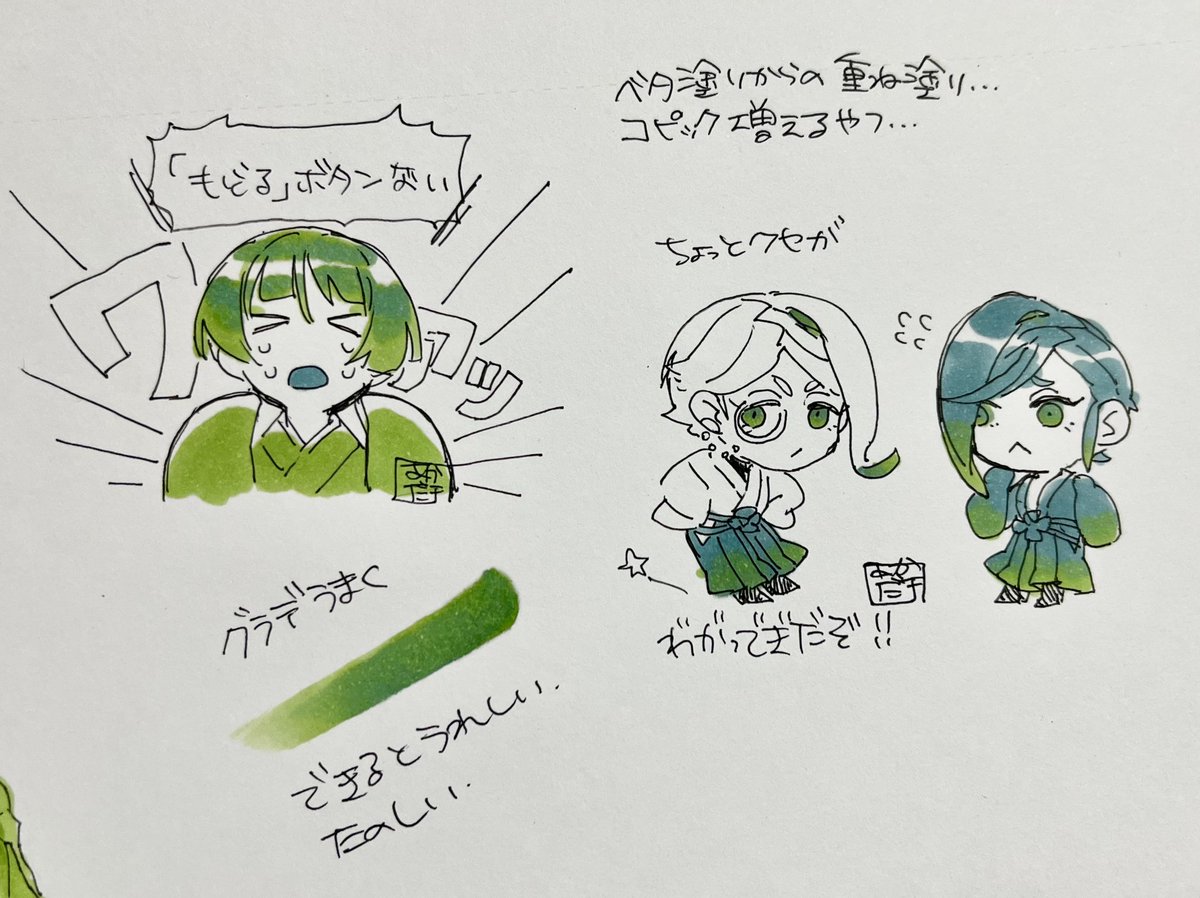 ベタ塗りからの重ね塗り…
コピック増えるやつ…
「もどる」ボタンない
ワァッ
ちょっとクセが
わかってきだぞ!!
グラデうまく
できるとうれしい.
たのしい.